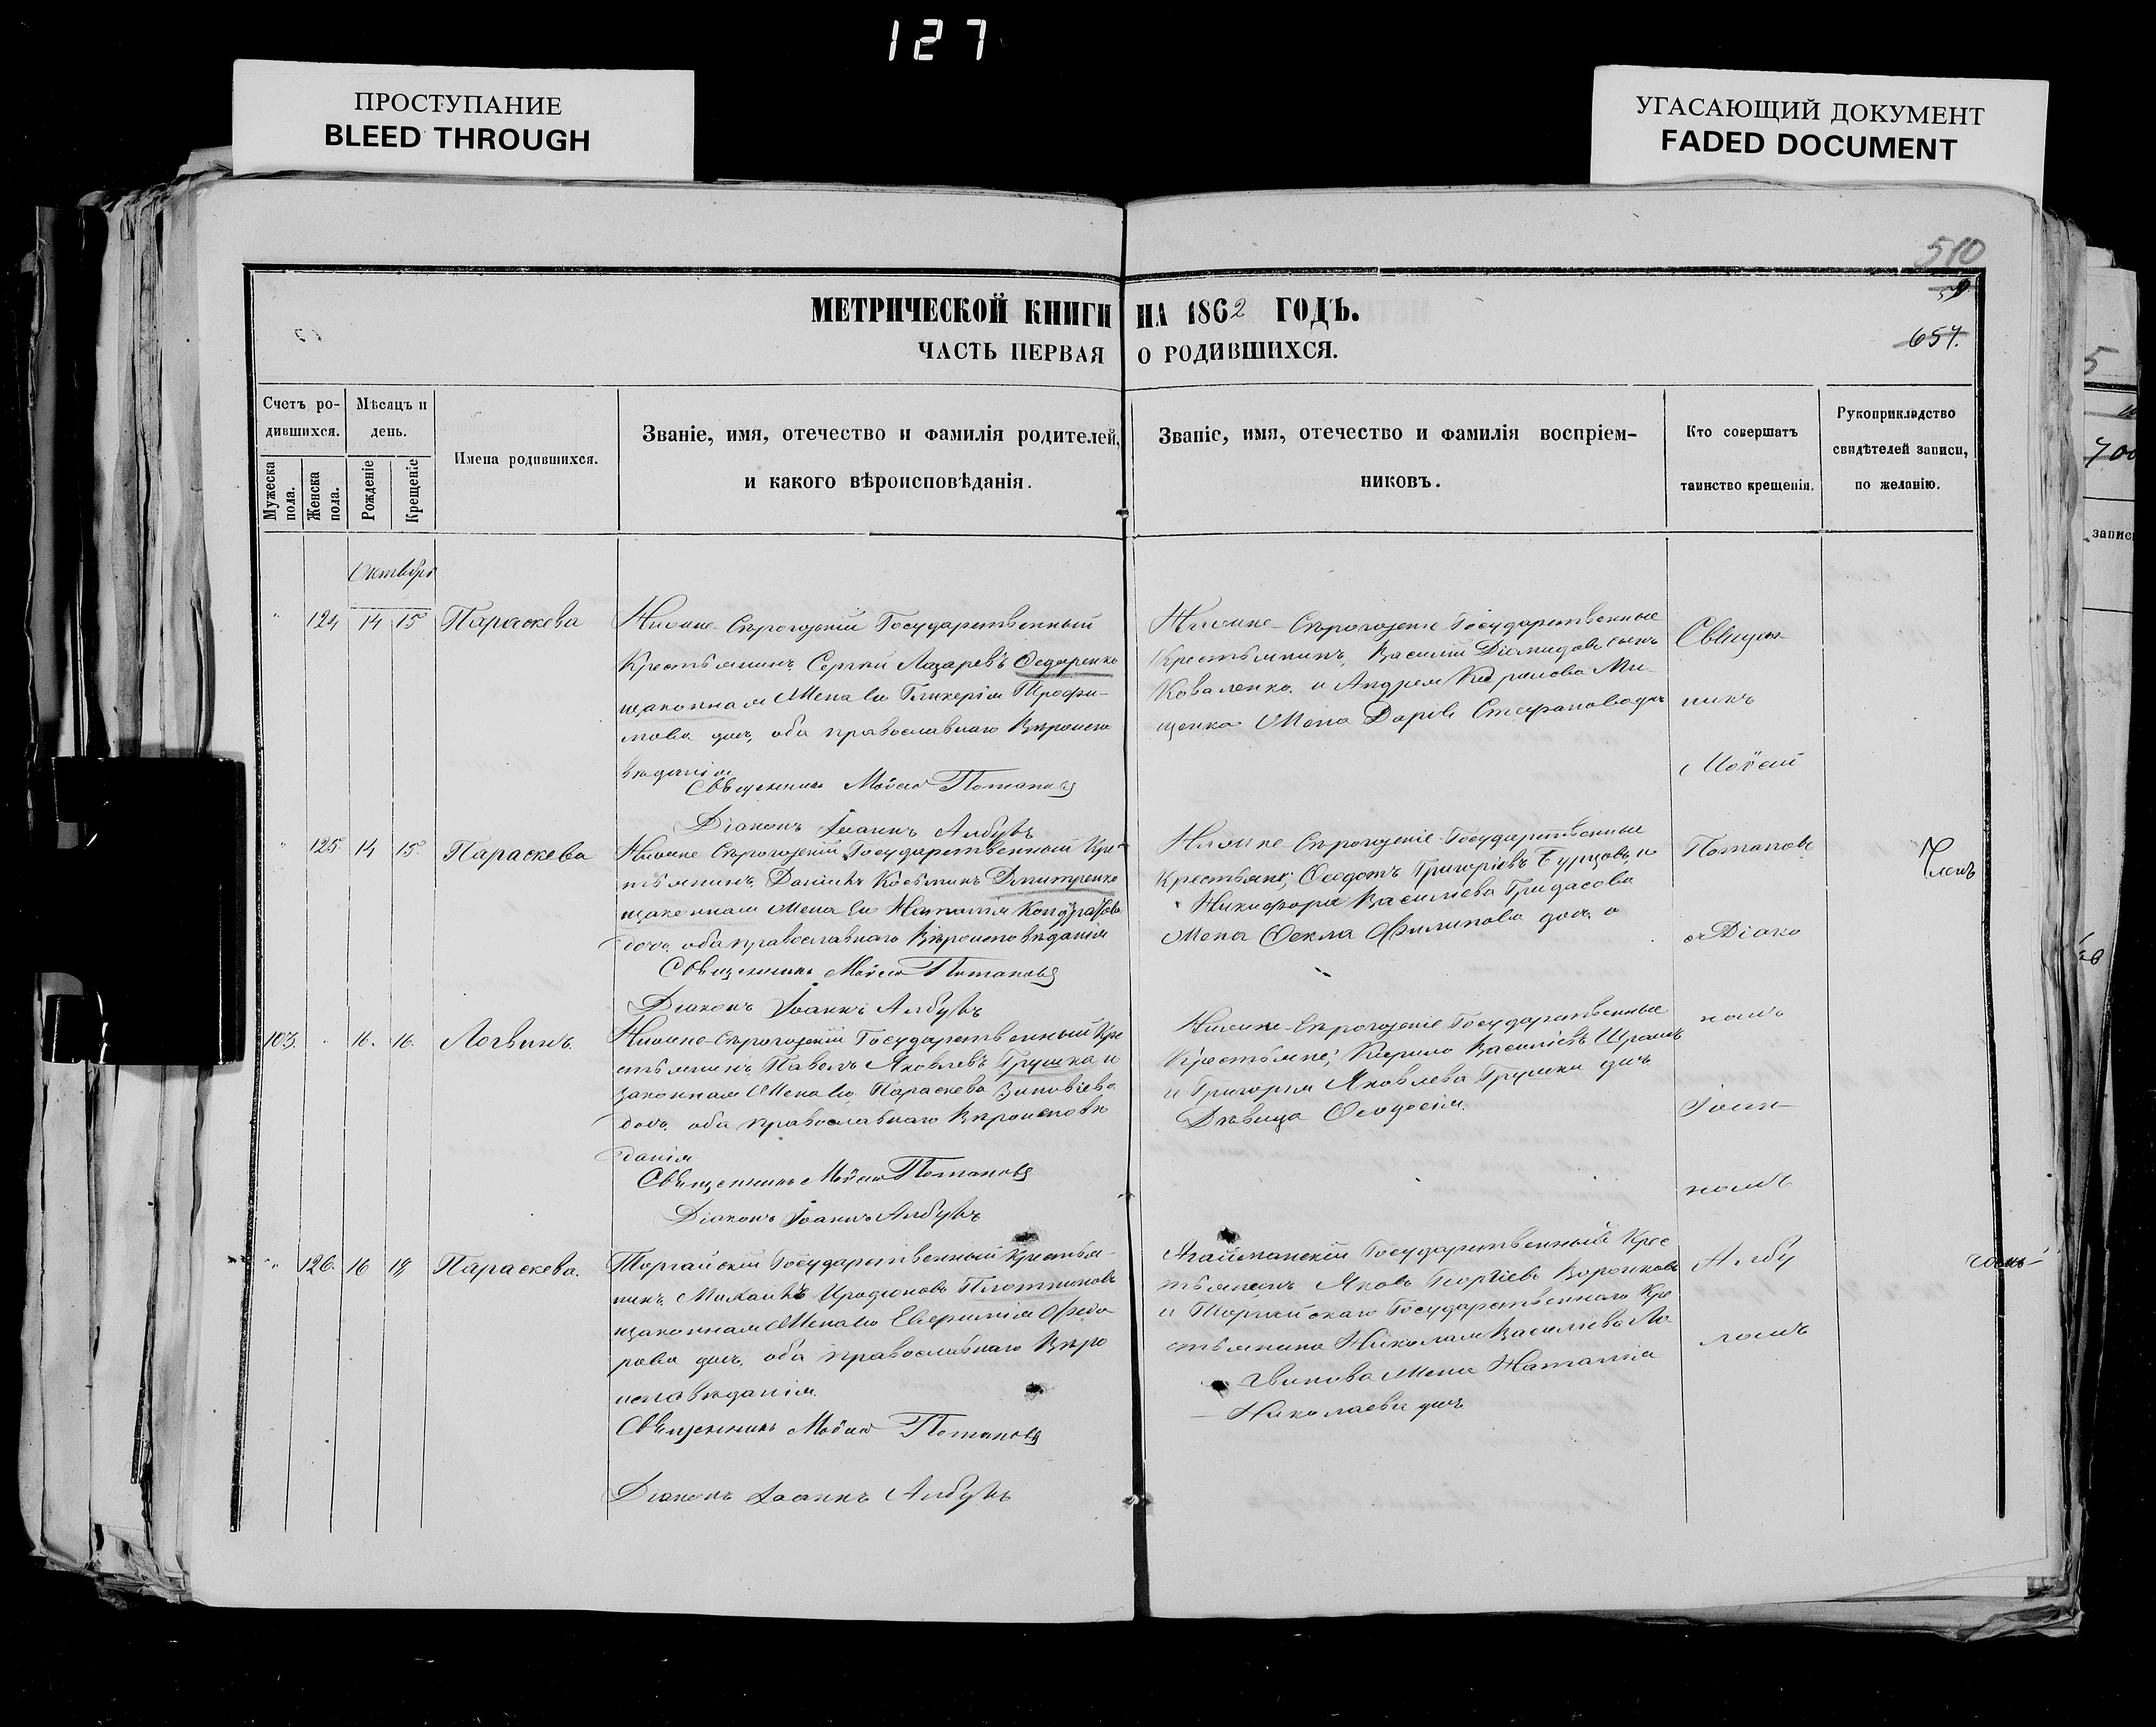 127
ПРОСТУПАНИЕ
BLEED THROUGH
УГАСАЮЩИЙ ДОКУМЕНТ
FADED DOCUMENT
510
657.
МЕТРИЧЕСКОЙ КНИГИ НА 1862 ГОДЪ.
ЧАСТЬ ПЕРВАЯ О РОДИВШИХСЯ.
Счетъ ро-
дившихся.
Мужеска
пола.
Женска
пола.
Мѣсяцъ и
день.
Рожденіе
Крещеніе
Имена родившихся.
Званіе, имя, отечество и фамилія родителей,
и какого вѣроисповѣданія.
Званіе, имя, отечество и фамилія воспріем-
никовъ.
Кто совершатъ
таинство крещенія.
Рукоприкладство
свидѣтелей записи,
по желанію.
Октября
124 14 15 Параскева
Нижне-Сѣрогозскій Государственный
Крестьянинъ Сергій Лазаревъ Ѳедоренко
и законная Жена его Гликерія Трофи-
мова доч, оба православнаго Вѣроиспо
вѣданія
Священникъ Мойсей Потаповъ
Діаконъ Іоаннъ Албулъ
Нижне-Сѣрогозскіе Государственные
Крестьянинъ, Василій Діомидовъ сынъ
Коваленко. и Андрея Кирилова Ми-
щенка Жена Дарія Стефанова доч
125. 14 15. Параскева
Нижне Сѣрогозскій Государственный Кре
стьянинъ, Даніилъ Косьминъ Дмитренко
и законная Жена его Наталія Кондратова
доч. оба православнаго Вѣроисповѣданія
Священникъ Мойсей Потаповъ
Діаконъ Іоаннъ Албулъ
Нижне Сѣрогозскіе Государственные
Крестьяне; Ѳеодотъ Григоріевъ Бурцовъ, и
Никифора Василіева Гридасова
Жена Ѳекла Филипова доч.
103. 16. 16. Логвинъ.
Нижне-Сѣрогозскій Государственный Кре
стьянинъ Павелъ Яковлевъ Грушка и
законная Жена его Параскева Зиновіева
доч. оба православнаго Вѣроисповѣ
данія
Священникъ Мойсей Потаповъ
Діаконъ Іоаннъ Албулъ
Нижне-Сѣрогозскіе Государственные
Крестьяне; Кирило Василіевъ
и Григорія Яковлева Грушки доч
Дѣвица Ѳеодосія.
126. 16 18 Параскева.
Торгайскій Государственный Крестья-
нинъ, Михаилъ Иродіоновъ Плотниковъ
и законная Жена его Евфимія Федо
рова доч, оба православнаго Вѣро
исповѣданія.
Священникъ Мойсей Потаповъ
Діаконъ Іоаннъ Албулъ
Агайманскій Государственный Крес
тьянинъ Яковъ Георгіевъ Воронковъ
и Торгайскаго Государственнаго Кре
стьянина Николая Василіева Ло
гвинова Жена Наталія
Николаева доч
Священ-
никъ
Мойсей
Потаповъ
съ Діако
номъ
Іоан-
номъ
Албу
ломъ
Членъ